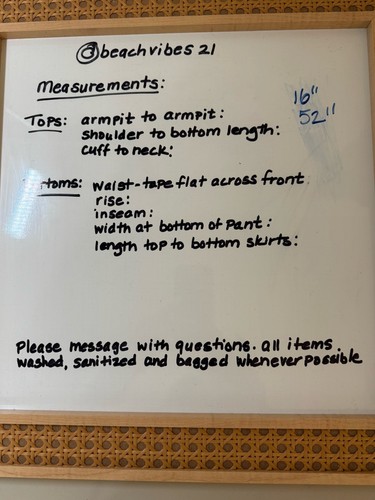 @beachvibes21
Measurements:
Tops: armpit to armpit: 16"
shoulder to bottom length: 52"
cuff to neck:
toms: waist-tape flat across front
rise:
inseam:
width at bottom of pant:
length top to bottom skirts:
Please message with questions. all items
washed, sanitized and bagged whenever possible